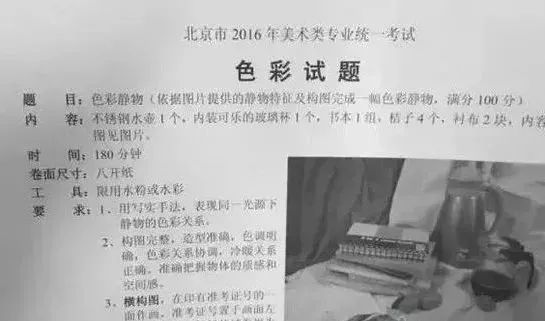 北京市 2016 年美术类专业统一考试
色彩试题
题 目：色彩静物（依据图片提供的静物特征及构图完成一幅色彩静物，满分 100 分）
内 容：不锈钢水壶 1 个，内装可乐的玻璃杯 1 个，书本 1 组，桔子 4 个，衬布 2 块，内容
图见图片。
时 间：180 分钟
卷面尺寸：八开纸
工 具：限用水粉或水彩
要 求：1、用写实手法，表现同一光源下
静物的色彩关系。
2、构图完整，造型准确，色调明
确，色彩关系协调，冷暖关系
正确。准确把握物体的质感和
空间感。
3、横构图，在印有准考证号的一
面作画，准考证号置于画面左